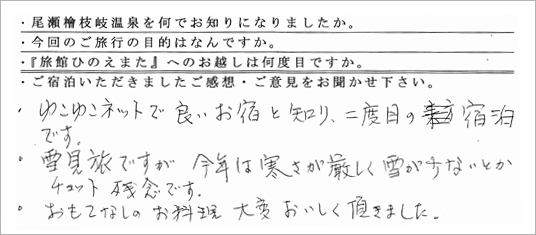 ・尾瀬檜枝岐温泉を何でお知りになりましたか。
・今回のご旅行の目的はなんですか。
・『旅館ひのえまた』へのお越しは何度目ですか。
・ご宿泊いただきましたご感想・ご意見をお聞かせ下さい。
・ゆこゆこネットで良いお宿と知り、二度目の宿泊
です。
・雪見旅ですが今年は寒さが厳しく雪が少ないとか
チョット残念です。
・おもてなしのお料理大変おいしく頂きました。